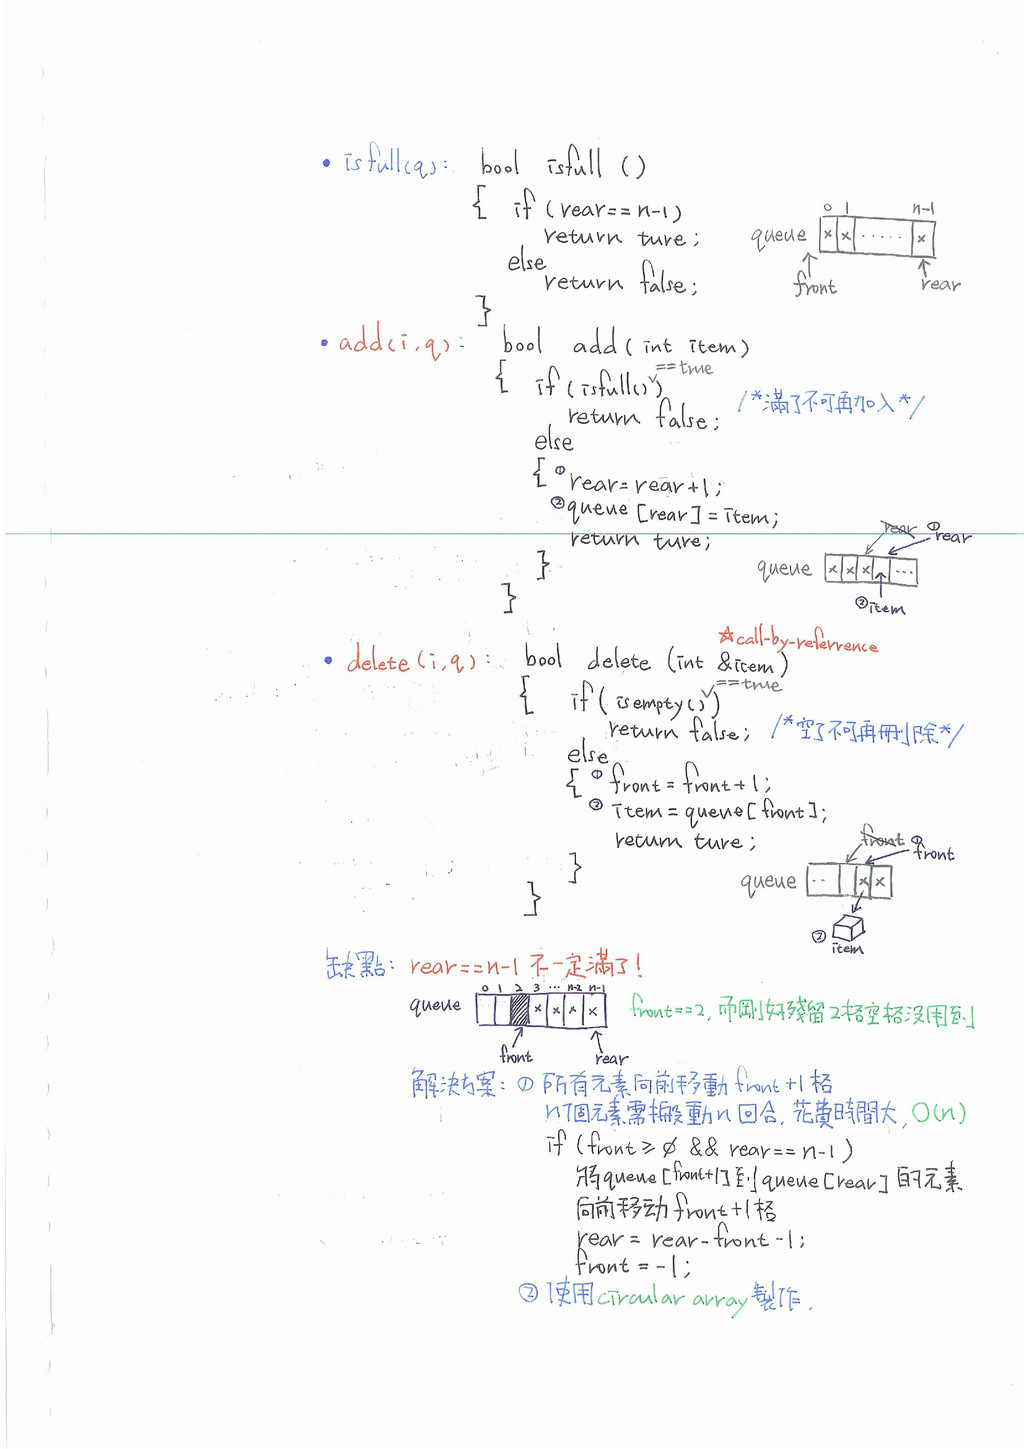 • isfull(q): bool isfull ()
{ if (rear==n-1)
return ture;
else
return false;
}
0 1 n-1
queue x x ..... x
front rear
• add(i,q): bool add( int item)
{ if (isfull()) ==true
return false; /*滿了不可再加入*/
else
{ ① rear=rear+1;
② queue [rear]=item;
return ture;
}
}
rear ① rear
queue x x x ...
② item
☆call-by-referrence
• delete(i,q): bool delete (int &item)
{ if( isempty()) ==true
return false; /*空了不可再刪除*/
else
{ ① front=front+1;
② item=queue[front];
return ture;
}
}
front ① front
queue .. x x
② item
缺點: rear==n-1 不一定滿了!
0 1 2 3 ... n-2 n-1
queue x x x x front==2, 而剛好殘留2格空格沒用到
front rear
解決方案: ① 所有元素向前移動 front+1 格
n個元素需搬動n回合, 花費時間大, O(n)
if (front≥0 && rear==n-1)
將queue[front+1]到queue[rear]的元素
向前移动front+1格
rear = rear-front-1;
front = -1;
② 使用circular array製作.